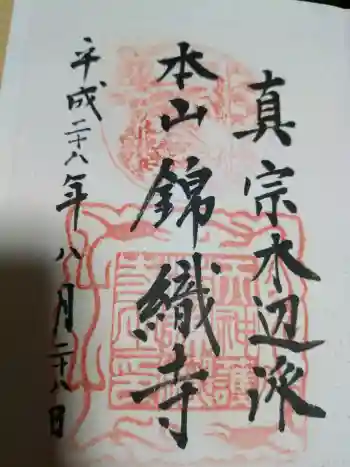 真宗木辺派
本山錦織寺
平成二十八年八月二十八日